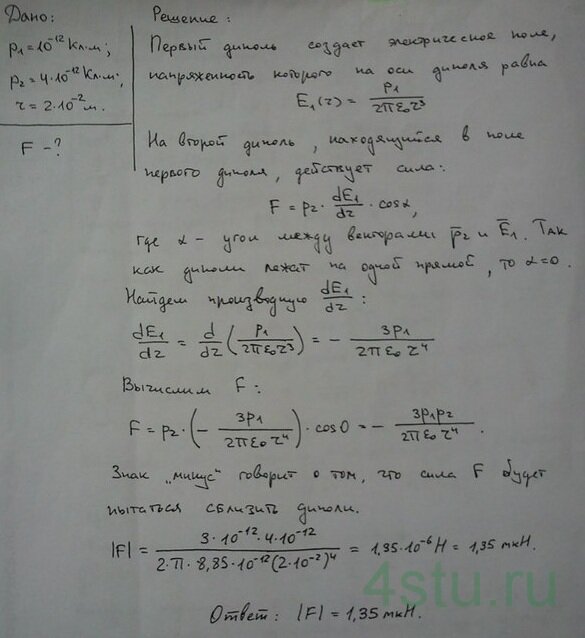 Дано:
p₁=10⁻¹² Кл·м;
p₂=4·10⁻¹² Кл·м;
r=2·10⁻² м.
F-?
Решение:
Первый диполь создает электрическое поле,
напряженность которого на оси диполя равна
E₁(r) = p₁/(2πε₀r³)
На второй диполь, находящийся в поле
первого диполя, действует сила:
F = p₂ · dE₁/dr · cosα,
где α – угол между векторами p̅₂ и E̅₁. Так
как диполи лежат на одной прямой, то α=0.
Найдем производную dE₁/dr:
dE₁/dr = d/dr (p₁/(2πε₀r³)) = - 3p₁/(2πε₀r⁴)
Вычислим F:
F = p₂·(- 3p₁/(2πε₀r⁴))·cos0 = - 3p₁p₂/(2πε₀r⁴).
Знак „минус“ говорит о том, что сила F будет
пытаться сблизить диполи.
|F| = 3·10⁻¹²·4·10⁻¹²/(2·π·8,85·10⁻¹²(2·10⁻²)⁴) = 1,35·10⁻⁶ Н = 1,35 мкН.
4stu.ru
Ответ: |F| = 1,35 мкН.